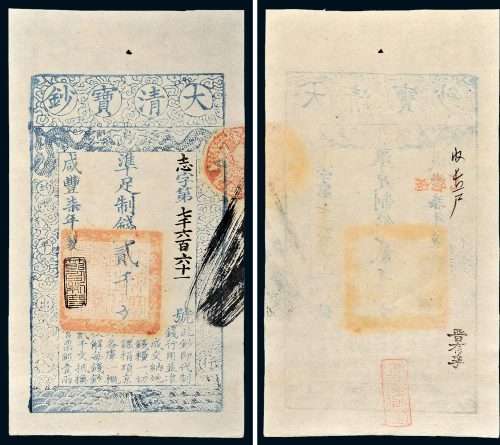 大清寶鈔
志字第七千六百六十一號
準足制錢貳千文
咸豐柒年製
此鈔即代制
錢行用並准
按成交納地
丁錢糧一切
稅課捐項京
外各庫一概
收解每錢鈔
貳千文抵換
官票銀壹兩